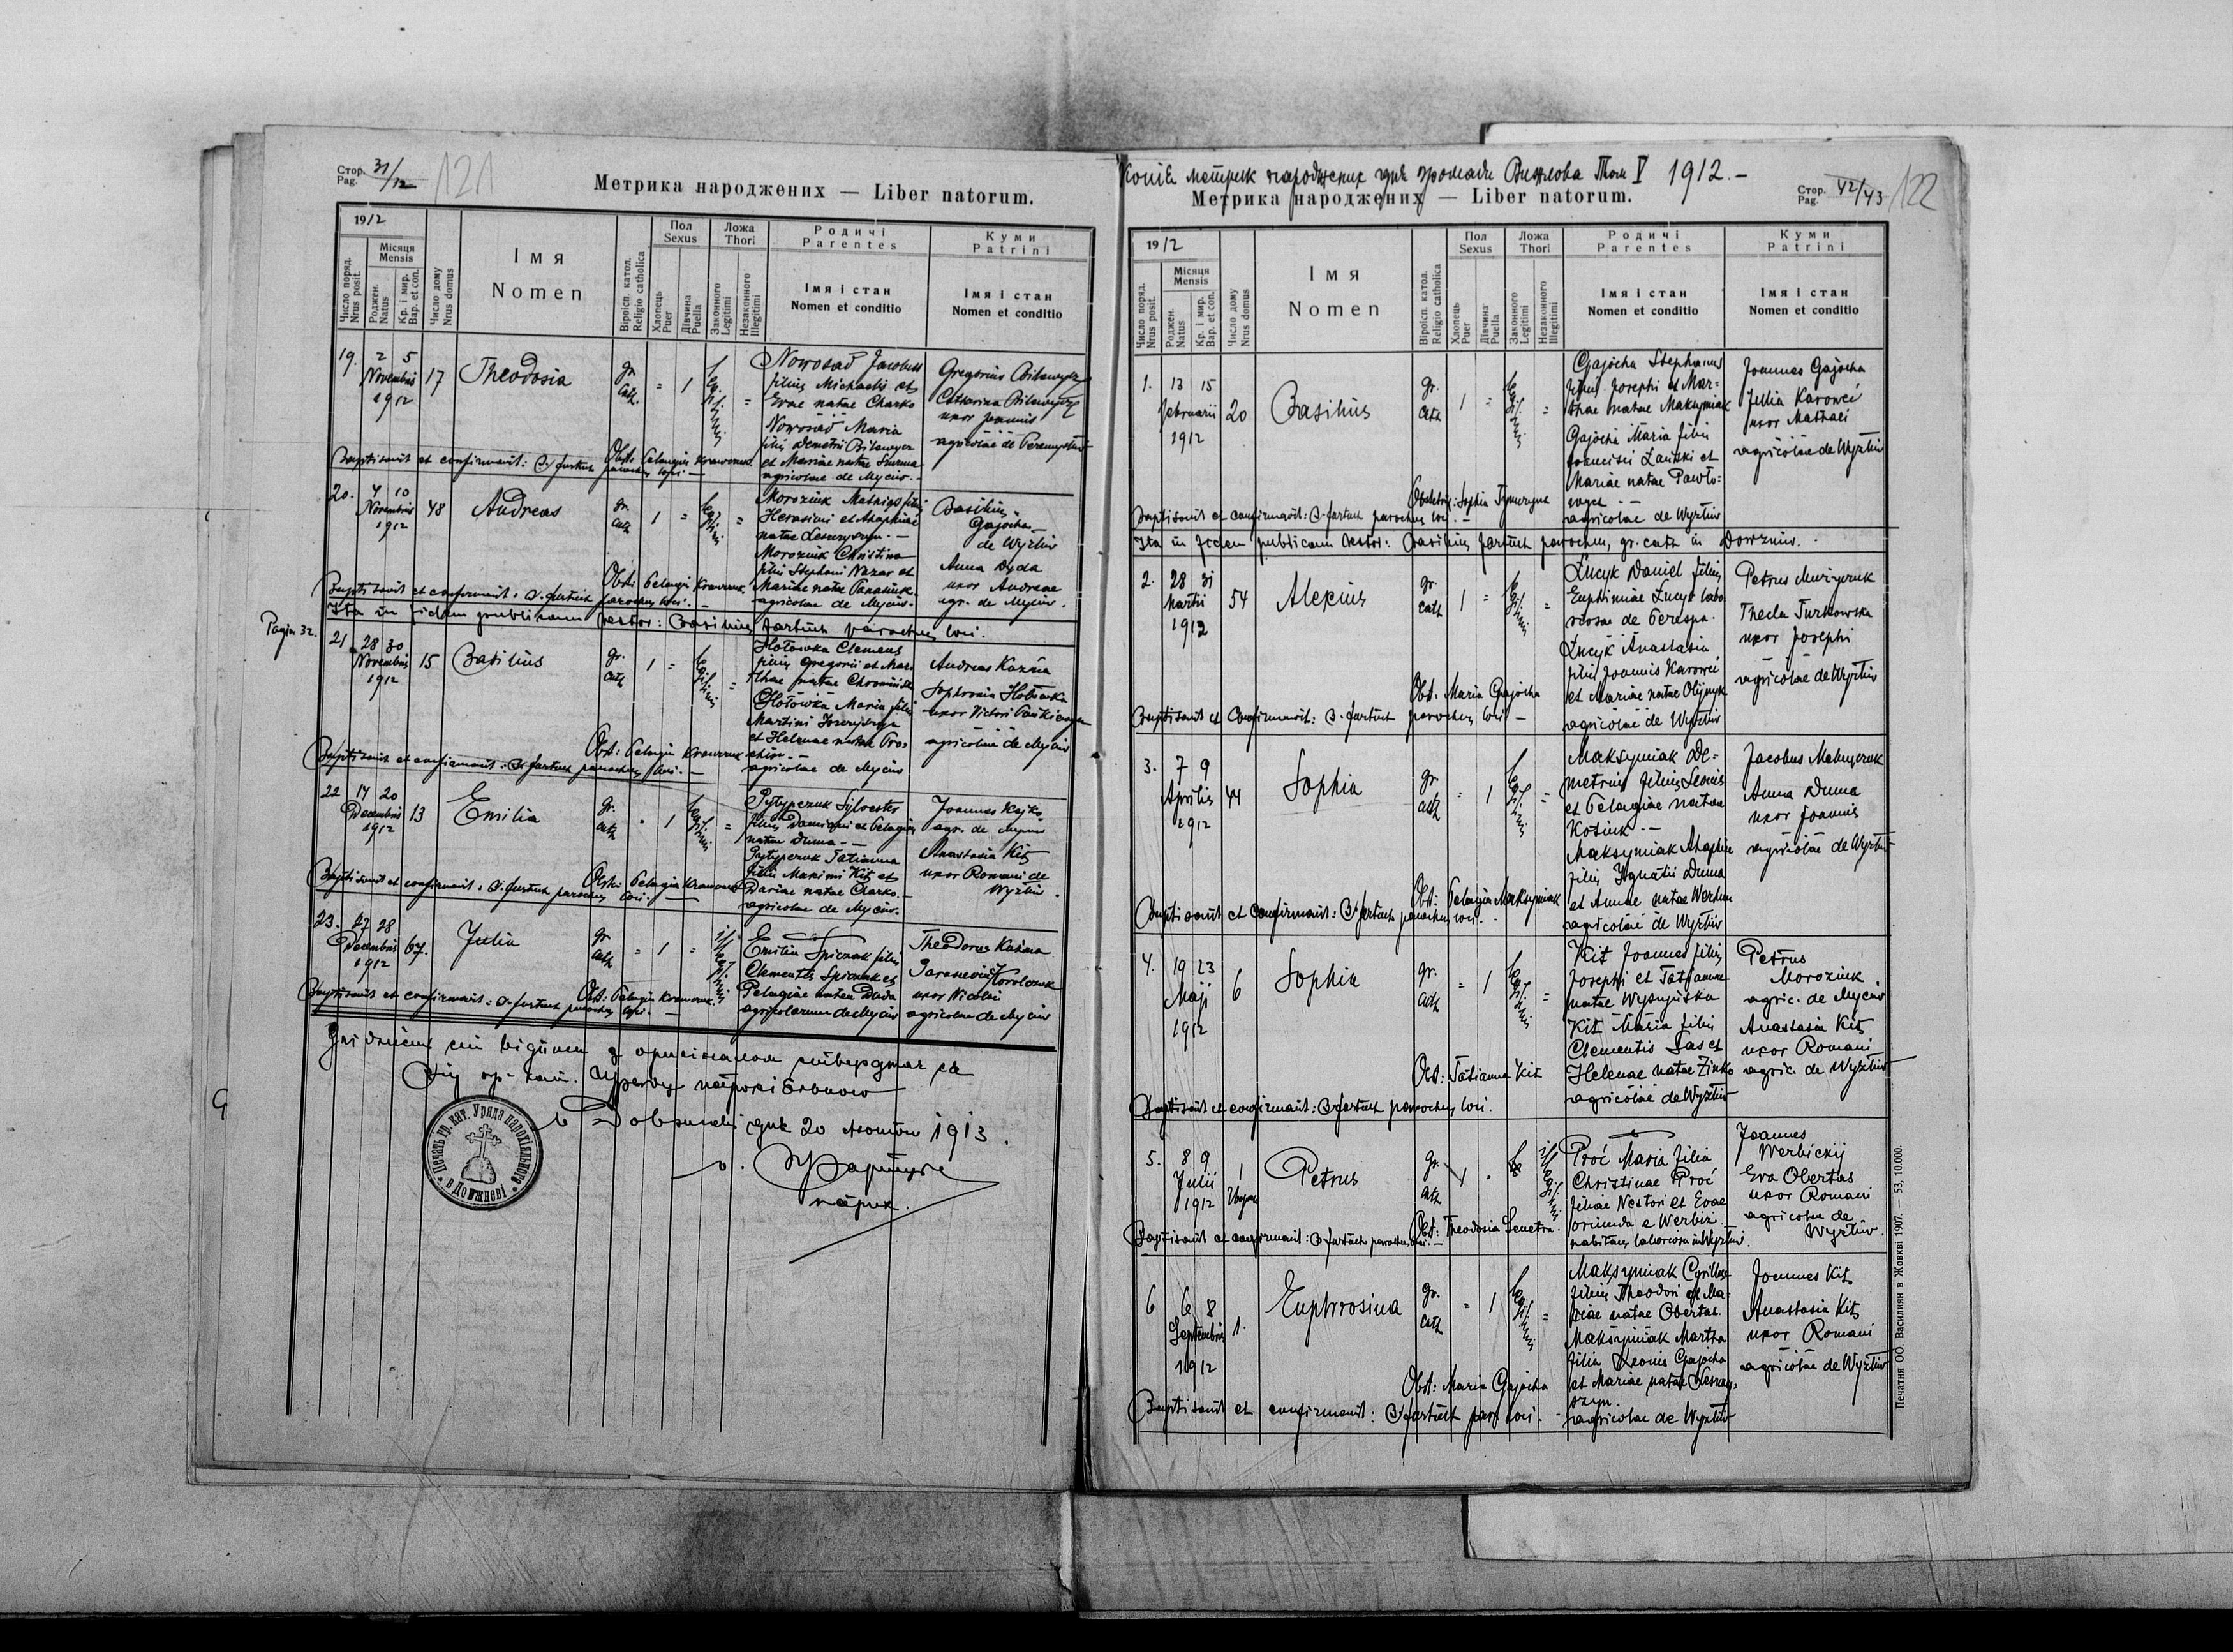 Стор. Pag. 31/12
121
Метрика народжених — Liber natorum.
1912
Число поряд. Nrus posit.
Місяця Mensis
Роджен. Natus
Кр. і мир. Bap. et con.
Число дому Nrus domus
Імя
Nomen
Віроісп. катол. Religio catholica
Пол Sexus
Хлопець Puer
Дівчина Puella
Ложа Thori
Законного Legitimi
Незаконного Illegitimi
Родичі Parentes
Імя і стан
Nomen et conditio
Куми Patrini
Імя і стан
Nomen et conditio
19. 2 5 Novembris 1912 17 Theodosia gr. cath. = 1 legitimi =
Nowosad Jacobus
filius Michaelis et
Evae natae Charko
Nowosad Maria
filia Demetrii
et Mariae natae
agricolae de Myciw.
Gregorius
Catharina
uxor Joannis
agricolae de
Baptisavit et confirmavit: B. Fartuch parochus loci. Obst: Pelagia
20. 4 10 Novembris 1912 48 Andreas gr. cath. 1 = legitimi =
Moroziuk Mathias filius
Herasimi et Ahaphiae
natae
Moroziuk Christina
filia Stephani Nazar et
Mariae natae Panasiuk
agricolae de Myciw.
Basilius
Gajocha
de Wyżłiw
Anna Dyda
uxor Andreae
agr. de Myciw.
Baptisavit et confirmavit: B. Fartuch parochus loci. Obst: Pelagia
Ita in fidem publicam testor: Basilius Fartuch parochus loci.
Pagin 32.
21. 28 30 Novembris 1912 15 Basilius gr. cath. 1 = legitimi =
Hołowka Clemens
filius Gregorii et Mar-
thae natae
Hołowka Maria filia
Martini
et Helenae natae Pro-
agricolae de Myciw
Andreas Kuzma
Sophronia Hołowka
uxor Victori
agricolae de Myciw
Baptisavit et confirmavit: B. Fartuch parochus loci. Obst: Pelagia
22 17 20 Decembris 1912 13 Emilia gr. cath. = 1 legitimi =
Pytypczuk Sylvester
filius Damiani et Pelagiae
natae Duma
Pytypczuk Tatianna
filia Maximi Kit et
Dariae natae Charko
agricolae de Myciw.
Joannes Kojko
agr. de Myciw
Anastasia Kit
uxor Romani de
Wyżłiw.
Baptisavit et confirmavit: B. Fartuch parochus loci. Obst: Pelagia
23. 27 28 Decembris 1912 67. Julia gr. cath. = 1 = illegitimi
Emilia Spiczak filia
Clementis Spiczak et
Pelagiae natae Duda
agricolarum de Myciw
Theodorus Kuzma
uxor Nicolai
agricolae de Myciw
Baptisavit et confirmavit: B. Fartuch parochus loci. Obst: Pelagia
Уряд парохіяльного
в Довжневі дня 20 лютого 1913.
о. Фартух
парох.
Печать гр. кат. Уряда парохіяльного в Довжневі
Копія метрик народжених для громади Вижлова Том V 1912.–
Метрика народжених — Liber natorum.
Стор. Pag. 42/43
122
1912
Число поряд. Nrus posit.
Місяця Mensis
Роджен. Natus
Кр. і мир. Bap. et con.
Число дому Nrus domus
Імя
Nomen
Віроісп. катол. Religio catholica
Пол Sexus
Хлопець Puer
Дівчина Puella
Ложа Thori
Законного Legitimi
Незаконного Illegitimi
Родичі Parentes
Імя і стан
Nomen et conditio
Куми Patrini
Імя і стан
Nomen et conditio
1. 13 15 Februarii 1912 20 Basilius gr. cath 1 = legitimi =
Gajocha Stephanus
filius Josephi et Mar-
thae natae Maksymiak
Gajocha Maria filia
Francisci et
Mariae natae Pawło-
agricolae de Wyżłiw
Joannes Gajocha
Julia Karowci
uxor Mathaei
agricolae de Wyżłiw
Baptisavit et confirmavit: B. Fartuch parochus loci. Obstetrix: Sophia
Ita in fidem publicam testor: Basilius Fartuch parochus gr. cath in Dowzniw.
2. 28 31 Martii 1912 54 Alexius gr. cath 1 = legitimi =
Łucyk Daniel filius
Euphimiae Łucyk labo-
riosae de Perespa.
Łucyk Anastasia
filia Joannis Karowci
et Mariae natae Olijnyk
agricolae de Wyżłiw
Petrus
Thecla Turkowska
uxor Josephi
agricolae de Wyżłiw
Baptisavit et Confirmavit: B. Fartuch parochus loci – Obst: Maria Gajocha
3. 7 9 Aprilis 1912 44 Sophia gr. cath = 1 legitimi =
Maksymiak De-
metrius filius Leonis
et Pelagiae natae
Kosiuk.
Maksymiak Ahaphia
filia Ignatii Duma
et Annae natae
agricolae de Wyżłiw
Jacobus
Anna Duma
uxor Joannis
agricolae de Wyżłiw
Baptisavit et Confirmavit: B. Fartuch parochus loci. Obst: Pelagia Maksymiak
4. 19 23 Maji 1912 6 Sophia gr. cath = 1 legitimi =
Kit Joannes filius
Josephi et Tatiannae
natae
Kit Maria filia
Clementis Sas et
Helenae natae Zinko
agricolae de Wyżłiw
Petrus
Moroziuk
agric. de Myciw
Anastasia Kit
uxor Romani
agric. de Wyżłiw
Obst: Tatianna Kit
Baptisavit et confirmavit: B. Fartuch parochus loci.
5. 8 9 Julii 1912 1 Petrus gr. cath 1 = illegitimi
Proć Maria filia
Christinae Proć
filiae Nestori et Evae
oriunda e Werbiz
habitans laboriosa in Wyżłiw.
Joannes
Werbickij
Eva Obertas
uxor Romani
agricolae de
Wyżłiw.
Baptisavit et confirmavit: B. Fartuch parochus loci. – Obst: Theodosia
6 6 8 Septembris 1912 1. Euphrosina gr. cath = 1 legitimi =
Maksymiak Cyrillus
filius Theodori et Ma-
riae natae Obertas
Maksymiak Martha
filia Leonis Gajocha
et Mariae natae
agricolae de Wyżłiw
Joannes Kit
Anastasia Kit
uxor Romani
agricolae de Wyżłiw
Obst: Maria Gajocha
Baptisavit et confirmavit: B. Fartuch par. loci.
Печатня ОО. Василиян в Жовкві 1907. — 53, 10.000.